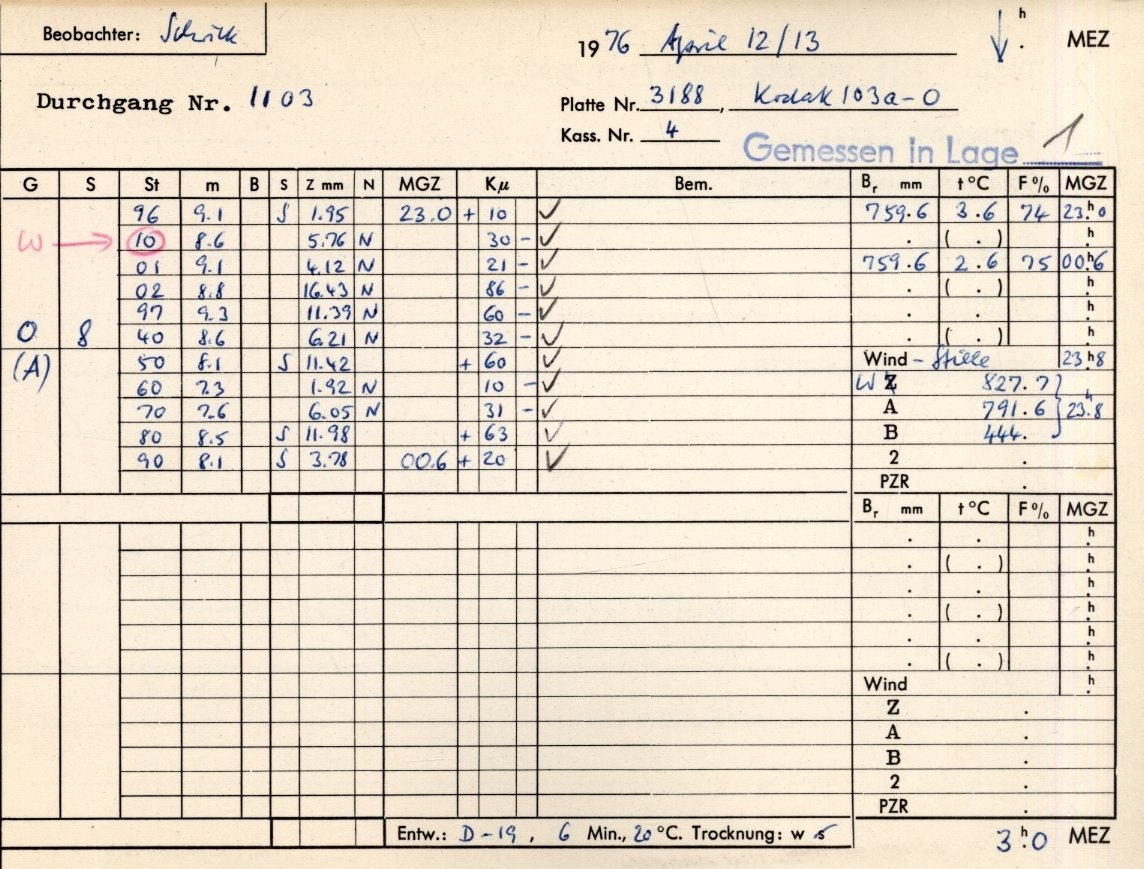 Beobachter: Schick
1976 April 12/13 h . MEZ
Durchgang Nr. 1103
Platte Nr. 3188, Kodak 103a-O
Kass. Nr. 4
Gemessen in Lage 1
G S St m B S Z mm N MGZ Kμ Bem. Br mm t °C F % MGZ
96 9.1 S 1.95 23.0 + 10 ✓ 759.6 3.6 74 23.h0
W → 10 8.6 5.76 N 30 - ✓ . ( . ) h.
01 9.1 4.12 N 21 - ✓ 759.6 2.6 75 00.h6
02 8.8 16.43 N 86 - ✓ . ( . ) h.
97 9.3 11.39 N 60 - ✓ . . h.
O 8 40 8.6 6.21 N 32 - ✓ . ( . ) h.
(A) 50 8.1 S 11.42 + 60 ✓ Wind - Stille 23.h8
60 7.3 1.92 N 10 - ✓ W Z 827.7
70 7.6 6.05 N 31 - ✓ A 791.6 23.h8
80 8.5 S 11.98 + 63 ✓ B 444.
90 8.1 S 3.78 00.6 + 20 ✓ 2 .
PZR .
Br mm t °C F % MGZ
. . h.
. ( . ) h.
. . h.
. ( . ) h.
. . h.
. ( . ) h.
Wind h.
Z .
A .
B .
2 .
PZR .
Entw.: D-19, 6 Min., 20 °C. Trocknung: w 5
3.h0 MEZ